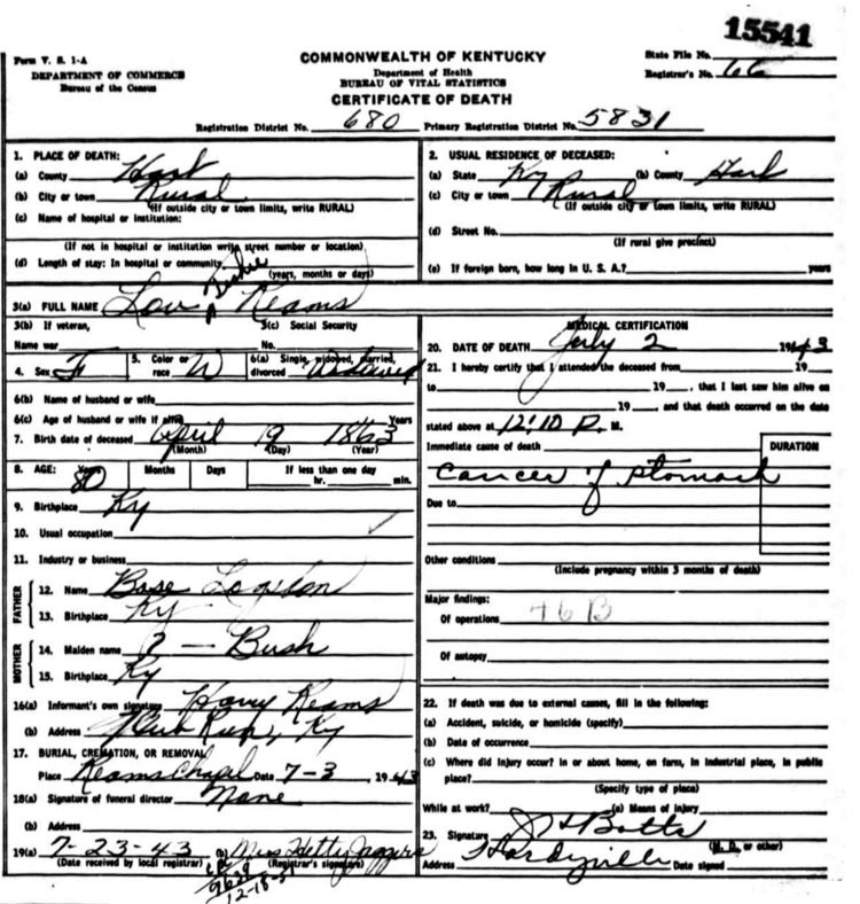 15541
Form V. S. 1-A
DEPARTMENT OF COMMERCE
Bureau of the Census
COMMONWEALTH OF KENTUCKY
Department of Health
BUREAU OF VITAL STATISTICS
CERTIFICATE OF DEATH
State File No.
Registrar's No. 66
Registration District No. 680 Primary Registration District No. 5831
1. PLACE OF DEATH:
(a) County Hart
(b) City or town Rural
(If outside city or town limits, write RURAL)
(c) Name of hospital or institution:
(If not in hospital or institution write street number or location)
(d) Length of stay: In hospital or community
(years, months or days)
2. USUAL RESIDENCE OF DECEASED:
(a) State Ky (b) County Hart
(c) City or town Rural
(If outside city or town limits, write RURAL)
(d) Street No.
(If rural give precinct)
(e) If foreign born, how long in U. S. A.? years
3(a) FULL NAME Lou Reams
3(b) If veteran,
Name war
3(c) Social Security
No.
4. Sex F 5. Color or race W 6(a) Single, widowed, married, divorced Widowed
6(b) Name of husband or wife
6(c) Age of husband or wife if alive Years
7. Birth date of deceased April 19 1863
(Month) (Day) (Year)
8. AGE: Years 80 Months Days If less than one day
hr. min.
9. Birthplace Ky
10. Usual occupation
11. Industry or business
FATHER
12. Name Base Logsdon
13. Birthplace Ky
MOTHER
14. Maiden name ? — Bush
15. Birthplace Ky
16(a) Informant's own signature Harry Reams
(b) Address Run, Ky
17. BURIAL, CREMATION, OR REMOVAL
Place Reams Chapel Date 7-3, 1943
18(a) Signature of funeral director None
(b) Address
19(a) 7-23-43 (b) Miss Hetty Jaggers
(Date received by local registrar) (Registrar's signature)
12-18-51
MEDICAL CERTIFICATION
20. DATE OF DEATH July 2 1943
21. I hereby certify that I attended the deceased from 19
to 19 , that I last saw him alive on
19 , and that death occurred on the date
stated above at 12:10 P. M.
Immediate cause of death
DURATION
Cancer of stomach
Due to
Other conditions
(Include pregnancy within 3 months of death)
Major findings:
Of operations 46 B
Of autopsy
22. If death was due to external causes, fill in the following:
(a) Accident, suicide, or homicide (specify)
(b) Date of occurrence
(c) Where did injury occur? In or about home, on farm, in industrial place, in public
place?
(Specify type of place)
While at work? (e) Means of injury
23. Signature Botts
(M. D. or other)
Address Hardyville Date signed